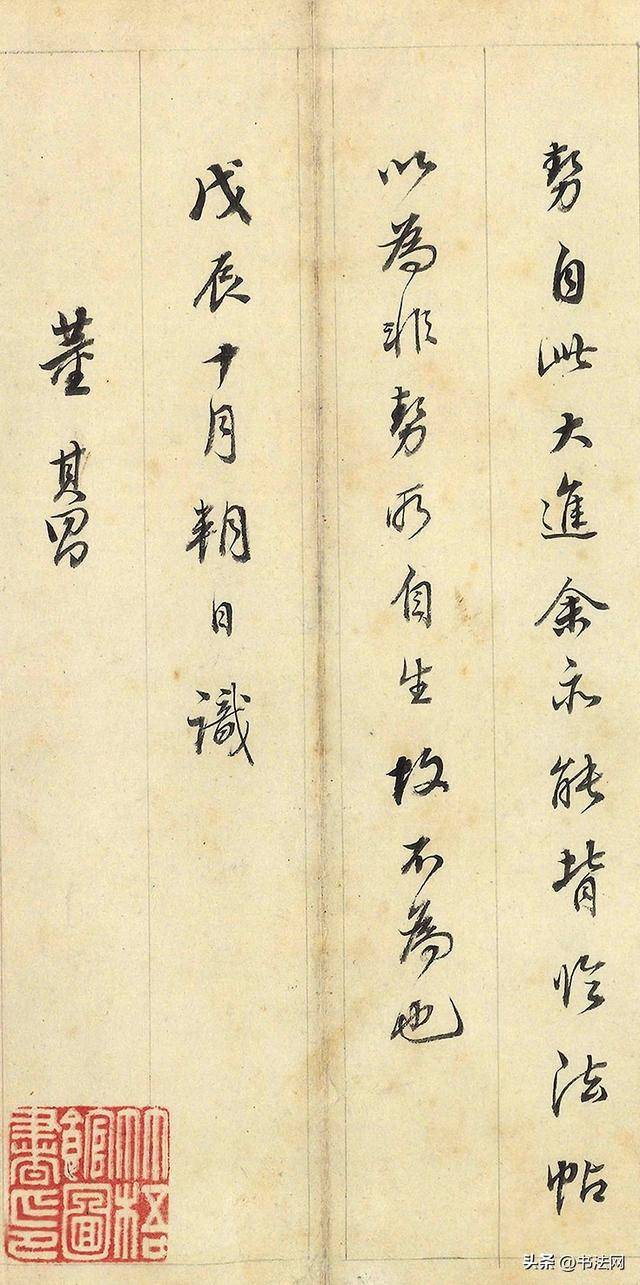 勢自此大進余亦能背臨法帖
以為非勢所自生故不為也
戊辰十月朔日識
董其昌
館圖
書印
头条 @书法网